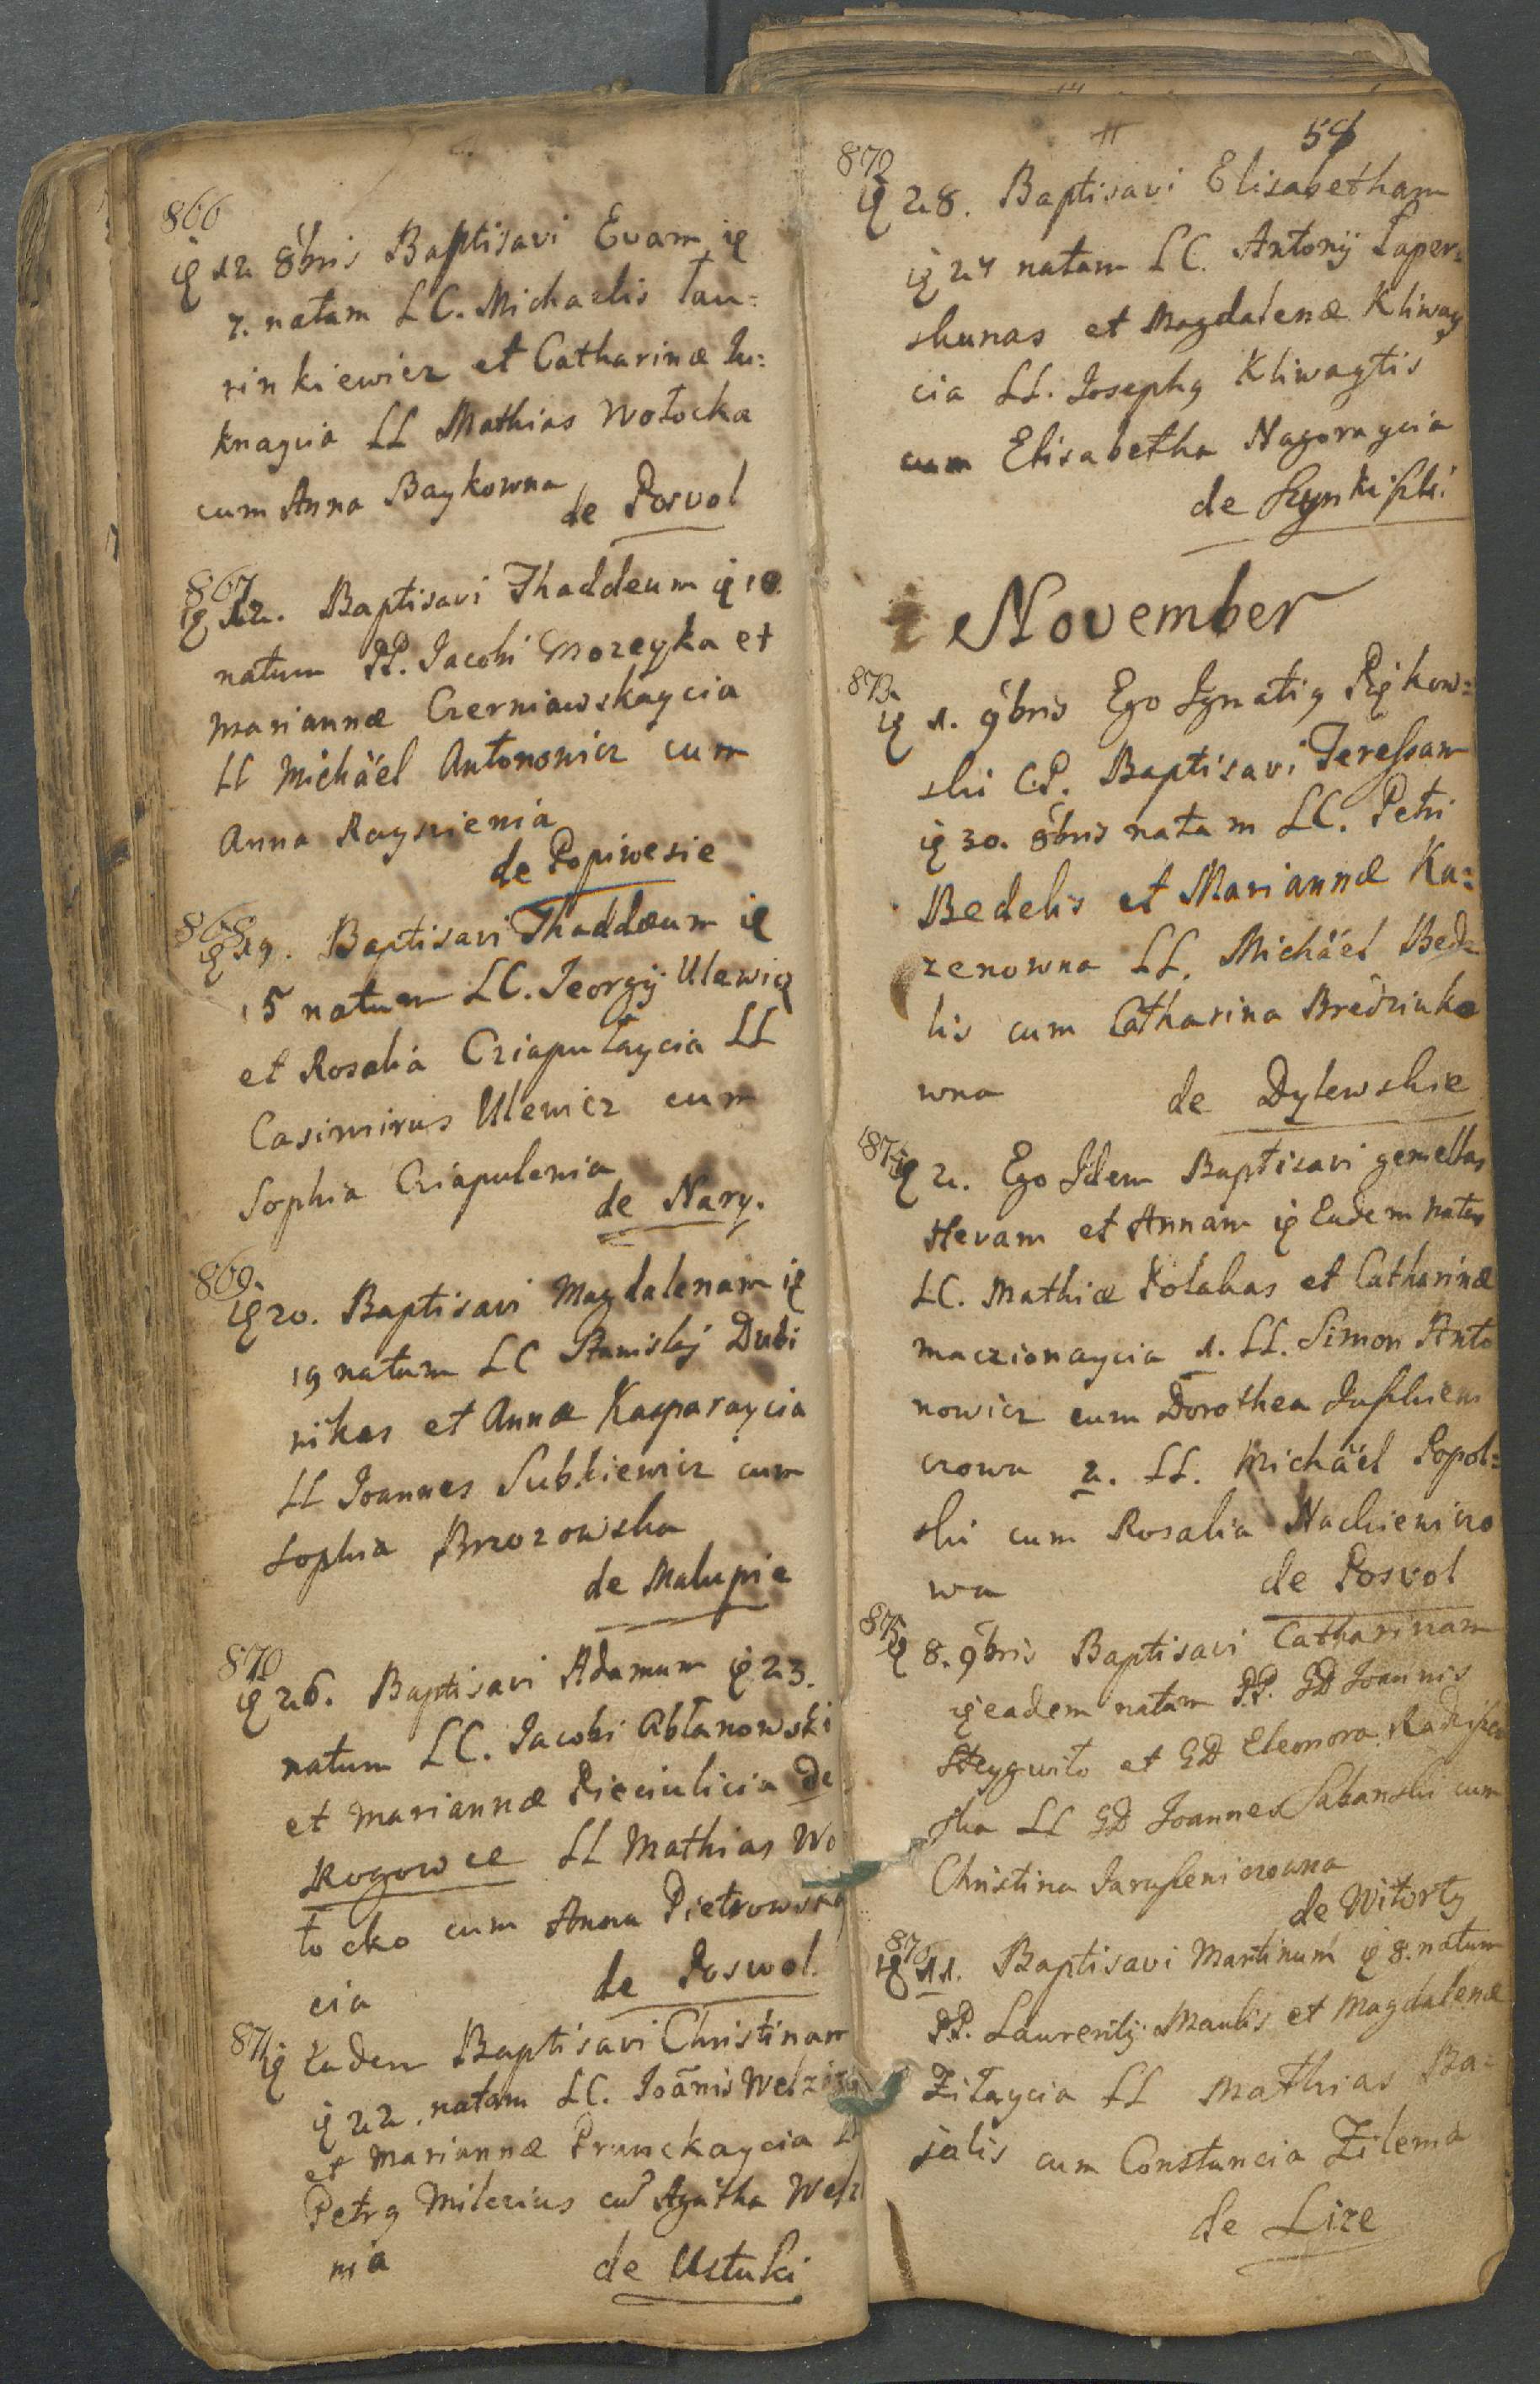 866
12 8bris Baptisavi Evam
7. natam LC. Michaelis Tau=
rinkiewicz et Catharinæ Iu=
knaycia LL Mathias Wołocka
cum Anna Baykowna
de Posvol
867
12. Baptisavi Thaddeum 10
natum PP. Iacobi Mozeyka et
Mariannæ Czerniawskaycia
LL Michäel Antonowicz cum
Anna
de Popiwesie
868
19. Baptisavi Thaddæum
15 natum LC. Georgij Ulewicz
et Rosalia Cziaputaycia LL
Casimirus Ulewicz cum
Sophia Cziapulenia
de Nary.
869.
20. Baptisavi Magdalenam
19 natam LC Stanislaj Dubi
nikas et Annæ Kasparaycia
LL Joannes Subkiewicz cum
Sophia Brzozowska
de Malupie
870
26. Baptisavi Adamum 23.
natum LC. Iacobi Abłanowski
et Mariannæ de
Rogowce LL Mathias Wo
łocko cum Anna Pietrowskay
cia de Poswol.
871
Eadem Baptisavi Christinam
22. natam LC. Ioānis
et Mariannæ Pranckaycia LL
Petrg Milczius cu Agatha
nia de Ustuki
54
872
28. Baptisavi Elisabetham
24 natam LC. Antonij Łaper=
skunas et Magdalenæ Kliway
cia LL. Josephg Kliwaytis
cum Elisabetha Nagornycia
de
November
873.
1. 9bris Ego Ignatig
ski C.P. Baptisavi Teressam
30. 8bris natam LC. Petri
Bedelis et Mariannæ Ka=
zenowna LL. Michäel Bede
lis cum Catharina Bredziuko
wna de Dylewskie
874
2. Ego Idem Baptisavi gemellas
Hevam et Annam Eadem natas
LC. Mathiæ Polakas et Catharinæ
Maczionaycia 1. LL. Simon Anto
nowicz cum Dorothea Juszkiewi
czowa 2. LL. Michäel Popol=
ski cum Rosalia Nackiewiczo
wa de Posvol
875
8. 9bris Baptisavi Catharinam
eadem natam PP. GD Joannis
Steygwiło et GD Eleonora
ska LL GD Joannes Sabanski cum
Christina
de Witorty
876
11. Baptisavi Martinum 8. natum
PP. Laurentij Maulis et Magdalenæ
Zilaycia LL Mathias Ba=
jalis cum Constancia Zilenia
de Lize